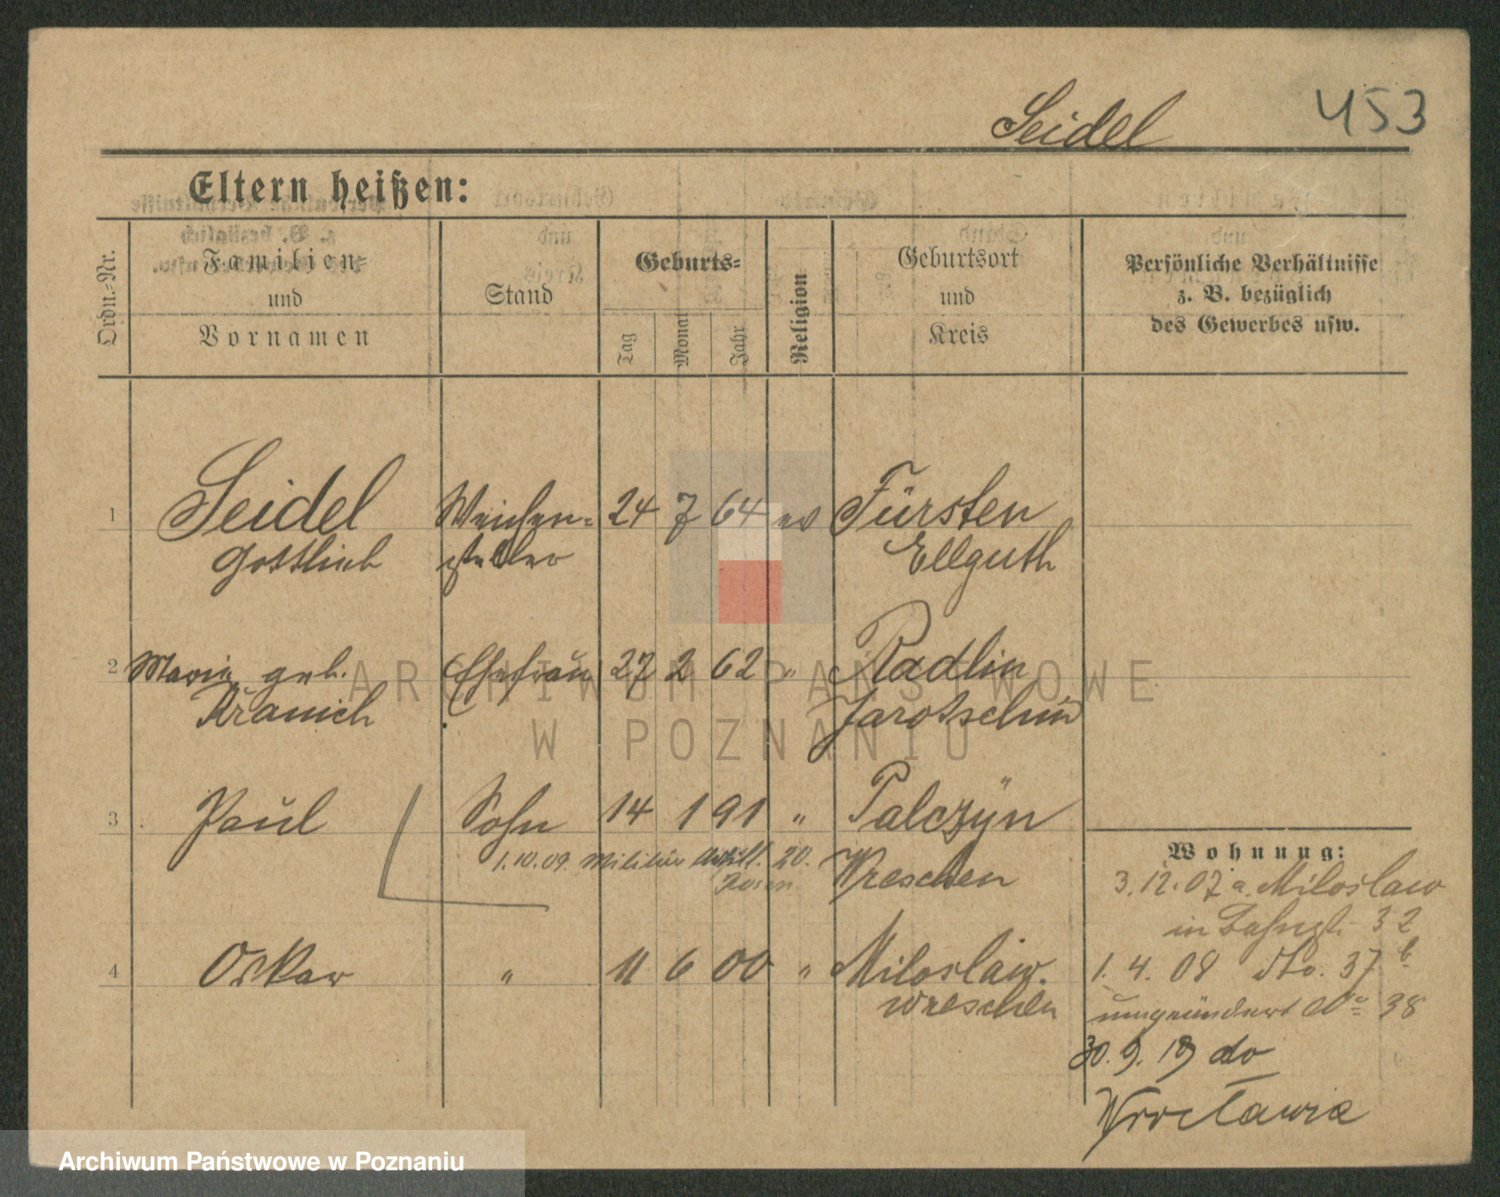 Seidel 453
Eltern heißen:
Ordn.-Nr.
Familien-
und
Vornamen
Stand
Geburts-
Tag
Monat
Jahr
Religion
Geburtsort
und
Kreis
Persönliche Verhältnisse
z. B. bezüglich
des Gewerbes usw.
1 Seidel Weichen- 24 7 64 ev Fürsten
Gottlieb steller Ellguth
2 Marie geb. Ehefrau 27 2 62 " Radlin
Kranich Jarotschin
3 Paul Sohn 14 1 91 " Palczÿn
1.10.09. Militär Artill. 20. Wreschen
Posen
4 Oskar " 11 6 00 " Miloslaw.
Wreschen
Wohnung:
3.12.07 a. Miloslaw
in 32
1. 4. 08 dto. 37 b.
umgeändert No 38
30. 9. 19 do
Wrocławia
ARCHIWUM PAŃSTWOWE
W POZNANIU
Archiwum Państwowe w Poznaniu